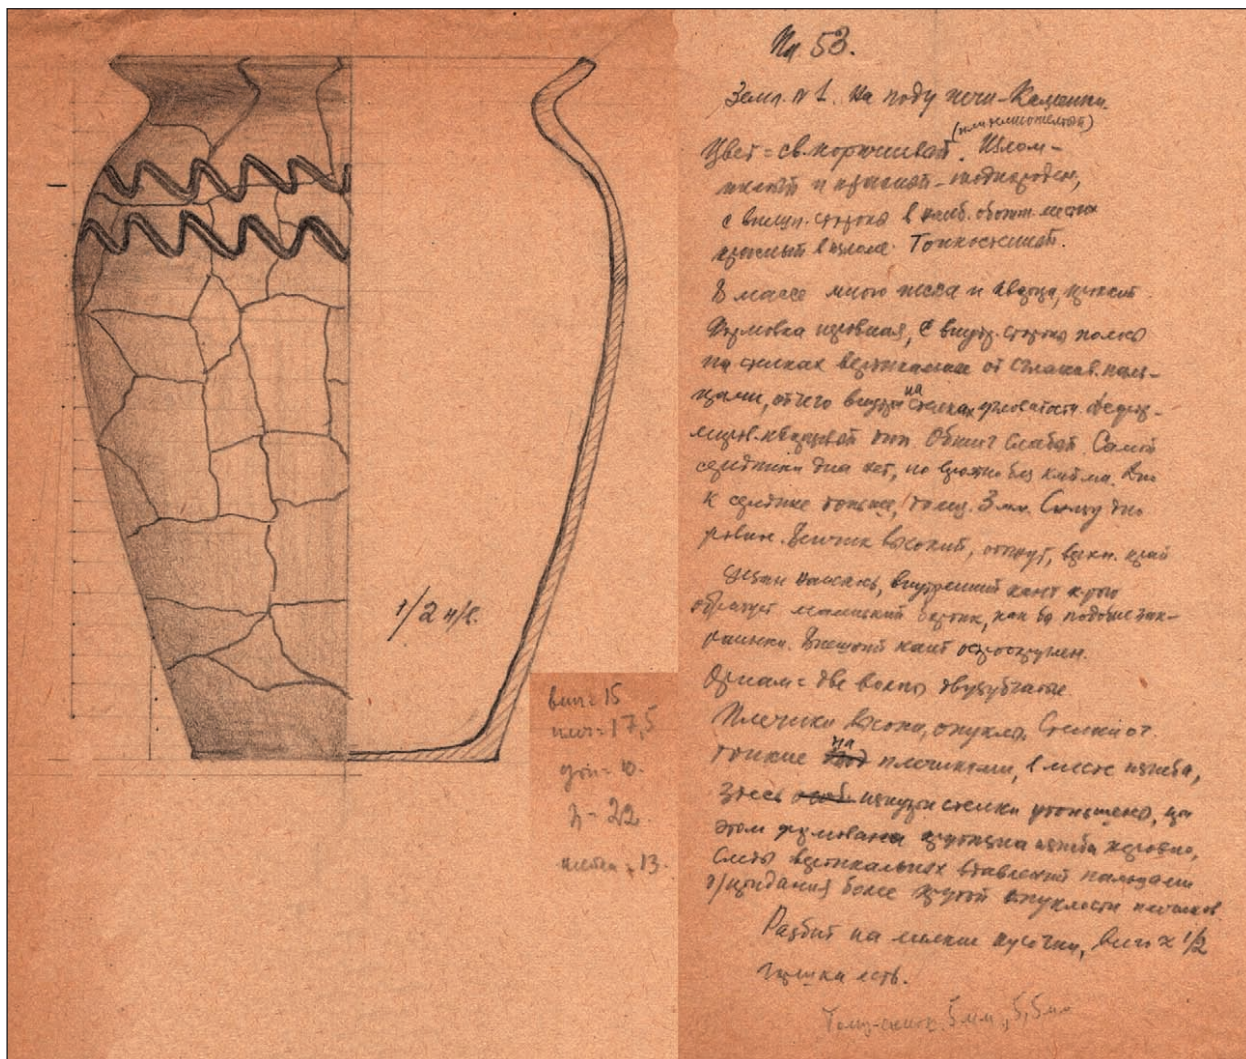 1/2 н/в.
венч = 15
плеч = 17,5
дн = 10.
h = 22.
шейки = 13.
Пл. 53.
Земл. № 1. На поду печи-Каменки.
Цвет = св. коричневый. Излом –
и красный – неоднороден,
с внешн. стороны в наиб. обожж. местах
красный в изломе. Тонкостенный.
В массе много песка и кварца,
Формовка неровная, с внутр. стороны полосы
на стенках вертикальные от сглажив. паль-
цами, отчего внутри на стенках угловатости.
Обжиг слабый. Самой
серединки дна нет, но видно без клейма. Дно
к середине тоньше, толщ. 3 мм. Снизу дно
ровное. Венчик высокий, отогнут, верхн. край
срезан наискось, внутренний кант
образует маленький бортик, как бы подобие зак-
раинки. Внешний кант
Орнам = две волны двузубчатые.
Плечики высоки, выпуклы. Стенки от
тонкие на плечиками, в месте изгиба,
здесь изнутри стенки утоньшены, при
этом изгиба неровно,
следы вертикальных вдавлений пальцами
д/придания более крутой выпуклости плечиков.
Разбит на мелкие кусочки, 1/2
горшка есть.
Толщ. стенок 5 мм, 5,5 мм